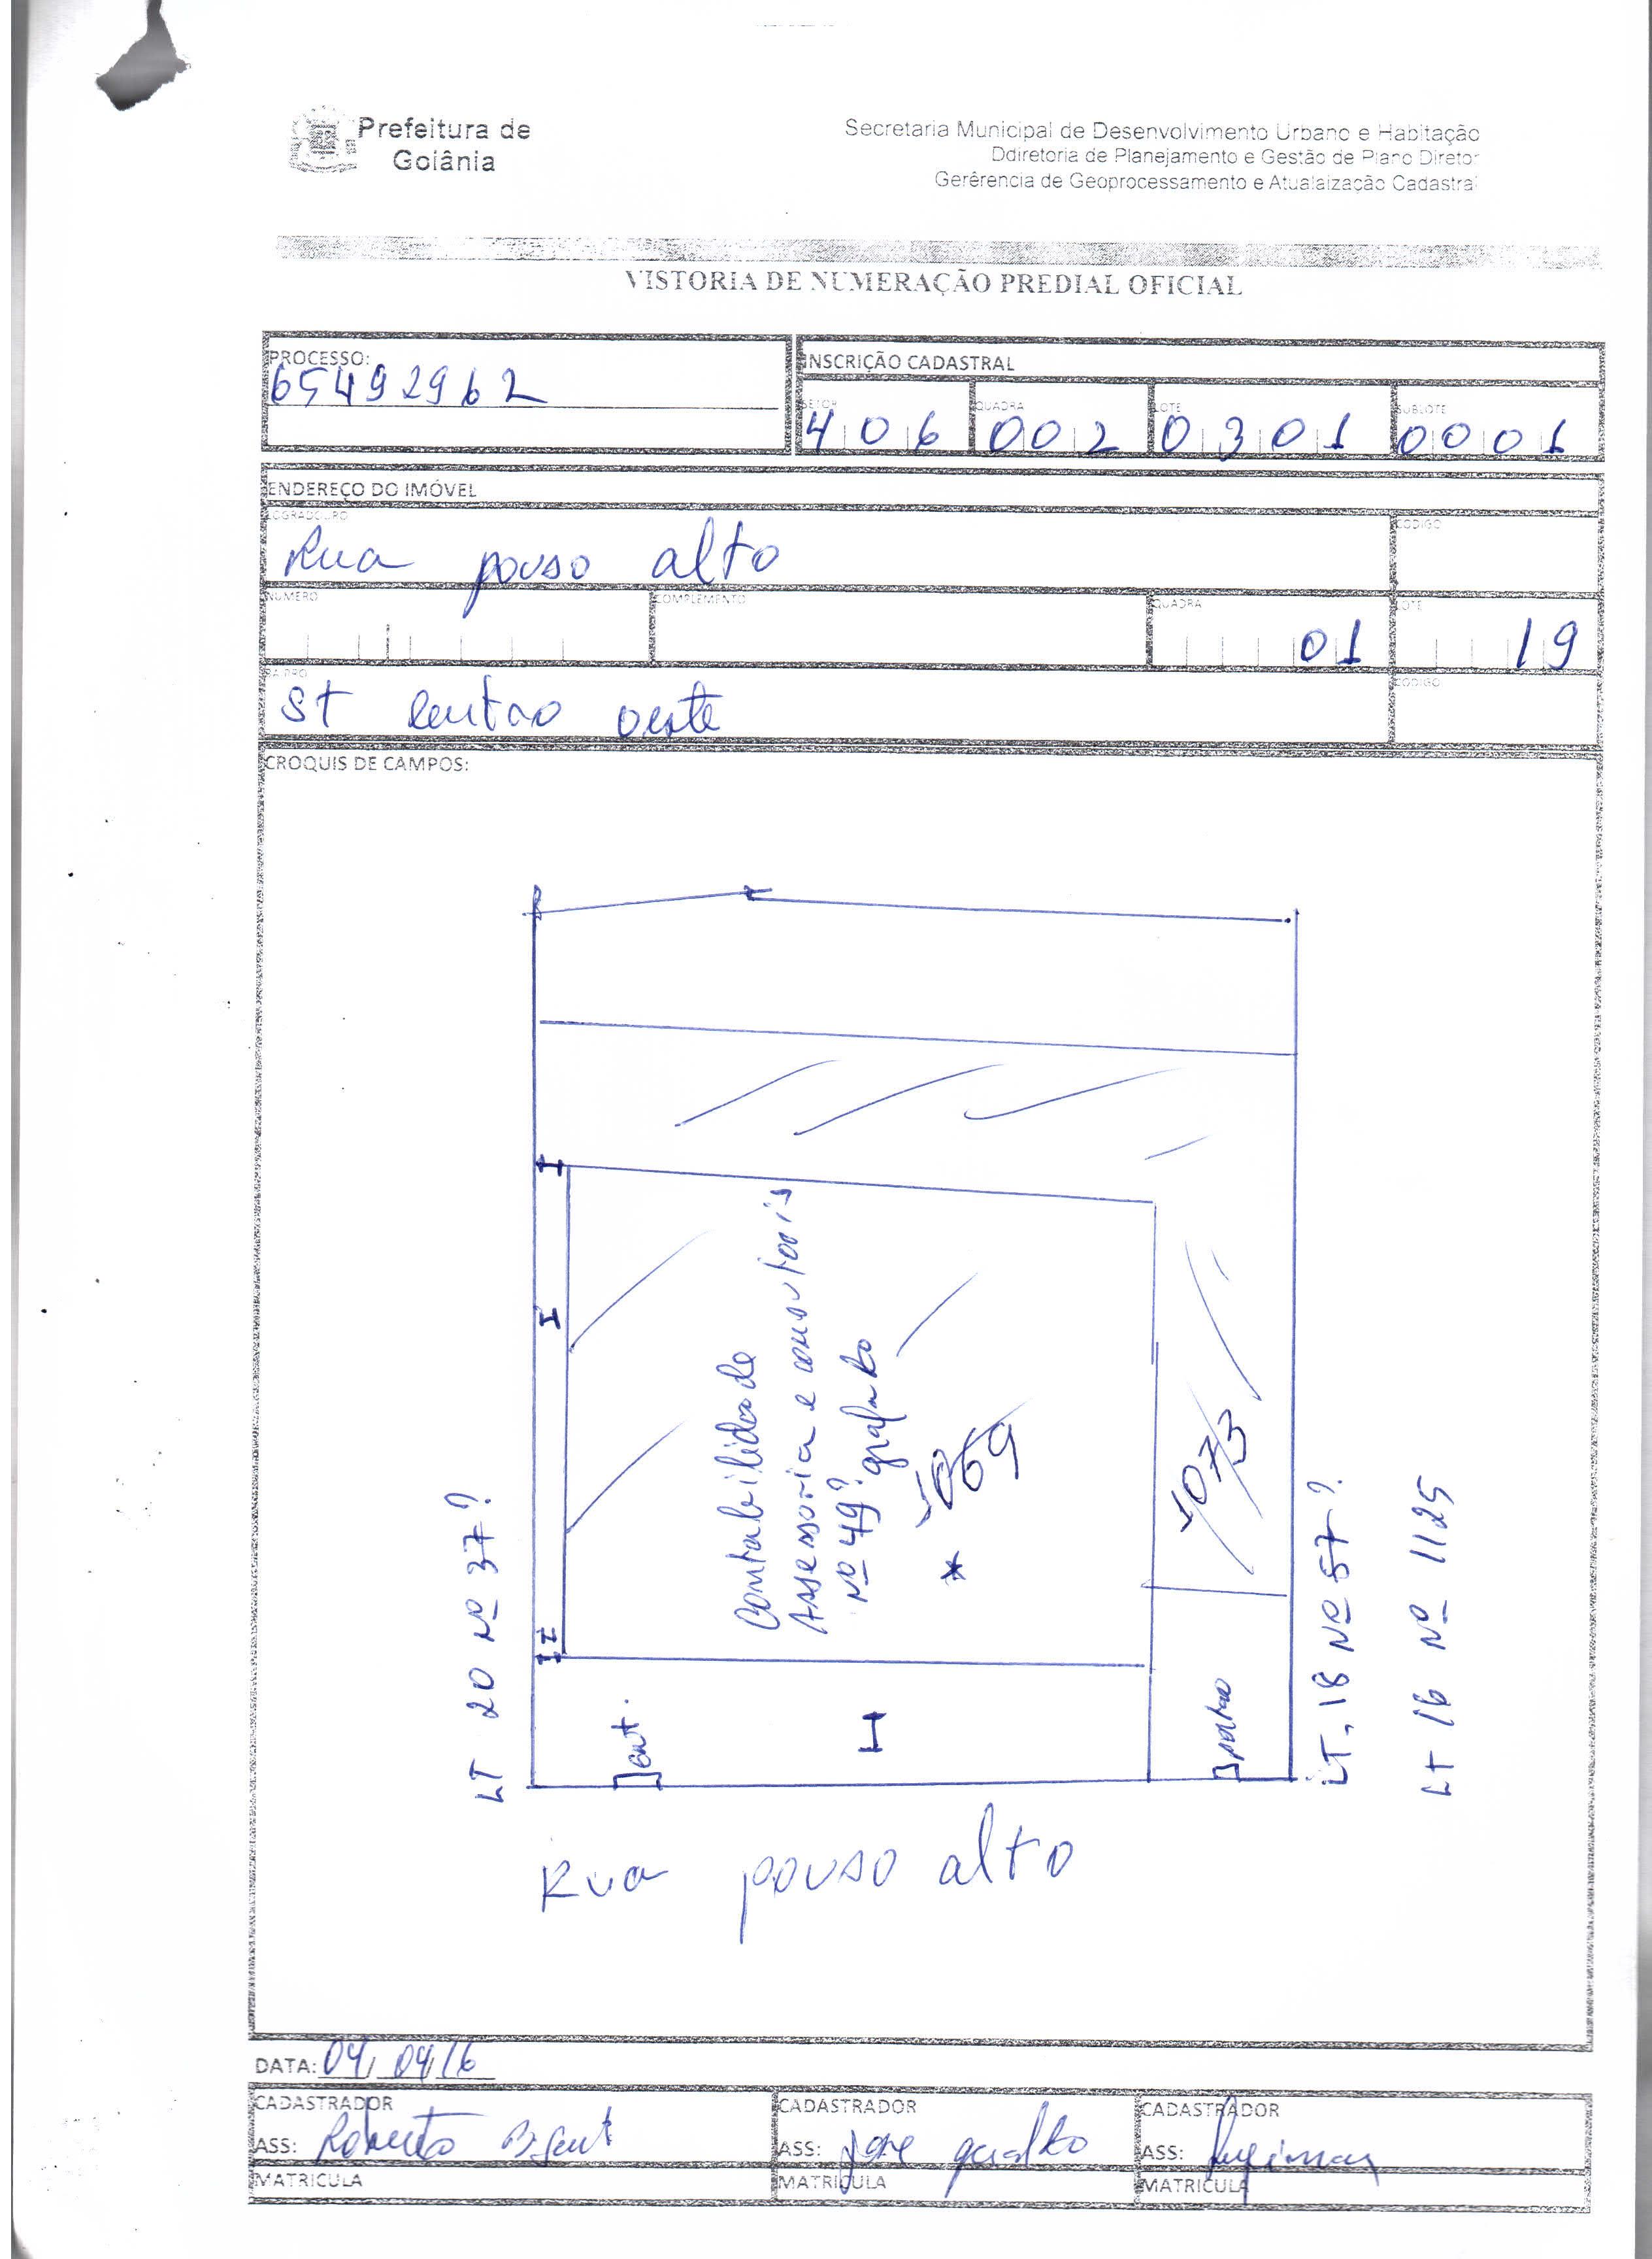 Prefeitura de
Goiânia
Secretaria Municipal de Desenvolvimento Urbano e Habitação
Ddiretoria de Planejamento e Gestão de Plano Diretor
Gerêrencia de Geoprocessamento e Atualaização Cadastral
VISTORIA DE NUMERAÇÃO PREDIAL OFICIAL
PROCESSO:
65492962
INSCRIÇÃO CADASTRAL
SETOR QUADRA LOTE SUBLOTE
406 002 0301 0001
ENDEREÇO DO IMÓVEL
LOGRADOURO CODIGO
Rua pouso alto
NUMERO COMPLEMENTO QUADRA LOTE
01 19
BAIRRO CODIGO
ST oeste
CROQUIS DE CAMPOS:
LT 20 Nº 37?
Contabilidade
Assessoria e
Nº 49? grafado
* 1069
1073
ent.
I
portao
LT. 18 Nº 57?
Lt 16 Nº 1125
Rua pouso alto
DATA: 04/04/16
CADASTRADOR CADASTRADOR CADASTRADOR
ASS: Roberto ASS: Jose geraldo ASS:
MATRICULA MATRICULA MATRICULA